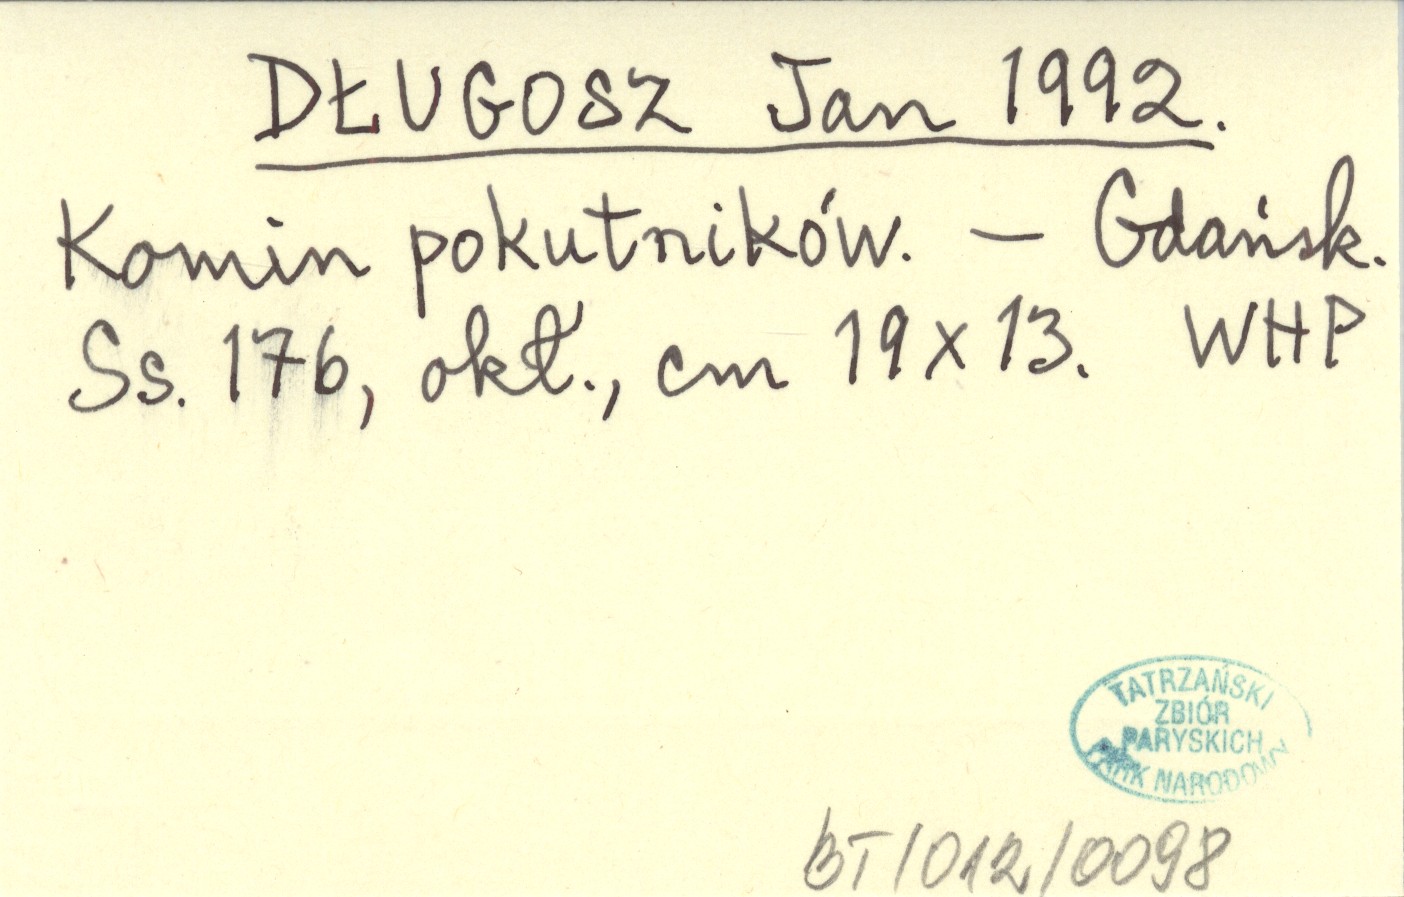 DŁUGOSZ Jan 1992.
Komin pokutników. — Gdańsk.
Ss. 176, okł., cm 19x13. WHP
TATRZAŃSKI
ZBIÓR
PARYSKICH
PARK NARODOWY
BT/012/0098